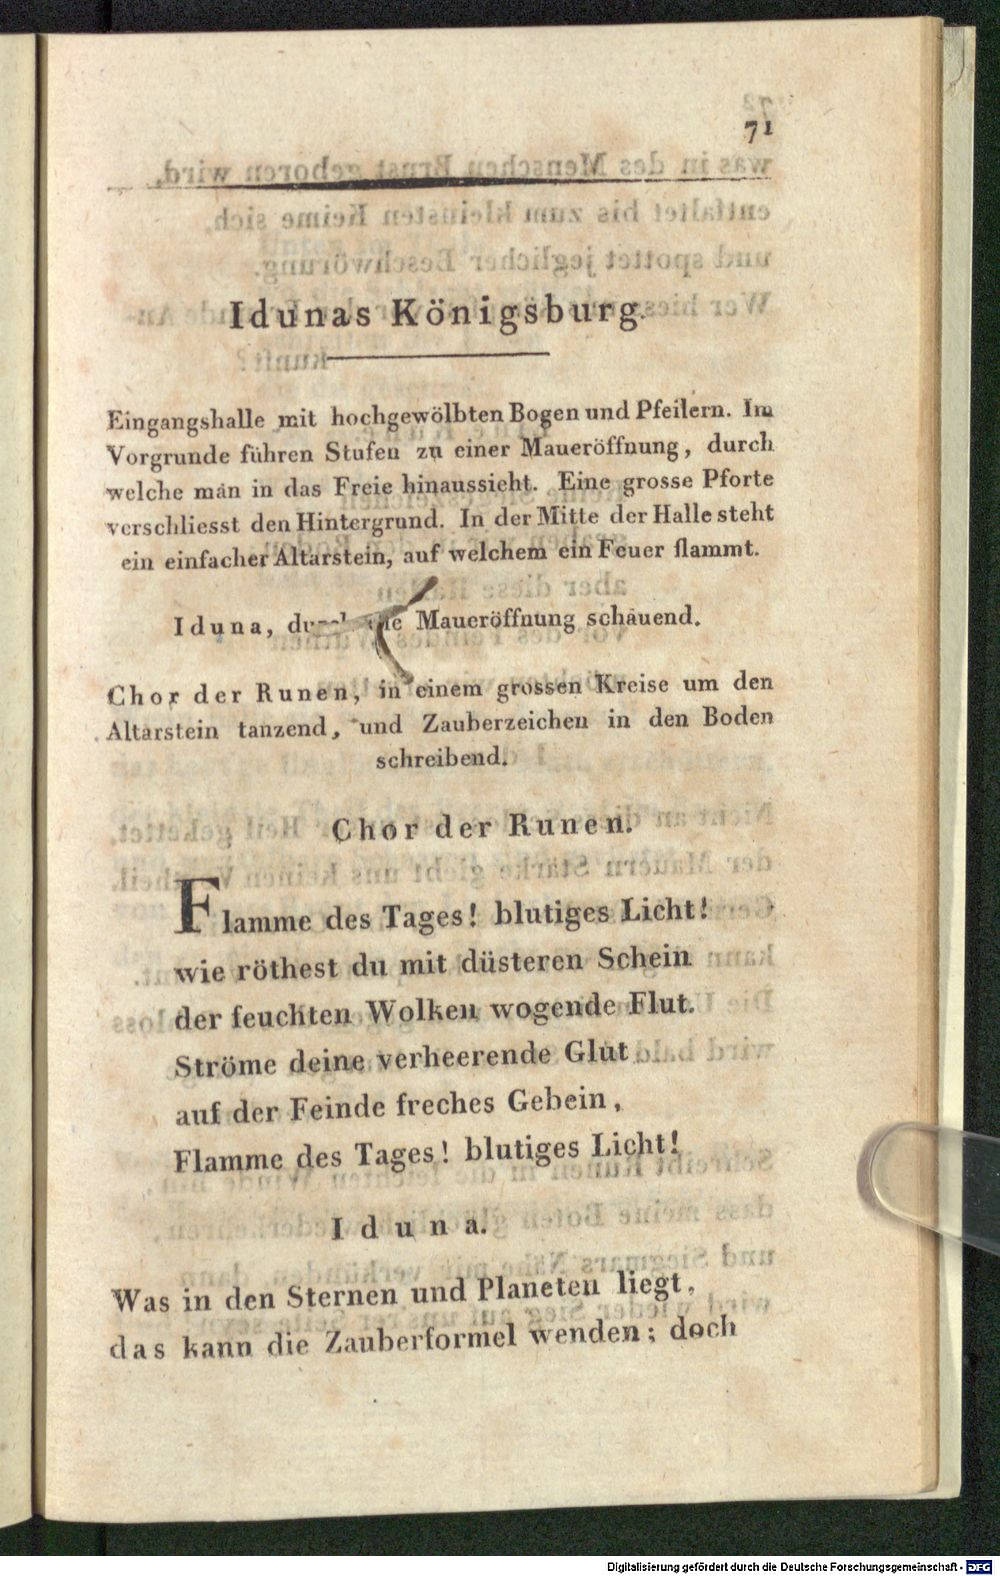 71
Idunas Königsburg.
Eingangshalle mit hochgewölbten Bogen und Pfeilern. Im
Vorgrunde führen Stufen zu einer Maueröffnung, durch
welche man in das Freie hinaussieht. Eine grosse Pforte
verschliesst den Hintergrund. In der Mitte der Halle steht
ein einfacher Altarstein, auf welchem ein Feuer flammt.
Iduna, Maueröffnung schauend.
Chor der Runen, in einem grossen Kreise um den
Altarstein tanzend, und Zauberzeichen in den Boden
schreibend.
Chor der Runen.
Flamme des Tages! blutiges Licht!
wie röthest du mit düsteren Schein
der feuchten Wolken wogende Flut.
Ströme deine verheerende Glut
auf der Feinde freches Gebein,
Flamme des Tages! blutiges Licht!
Iduna.
Was in den Sternen und Planeten liegt,
das kann die Zauberformel wenden; doch
Digitalisierung gefördert durch die Deutsche Forschungsgemeinschaft - DFG